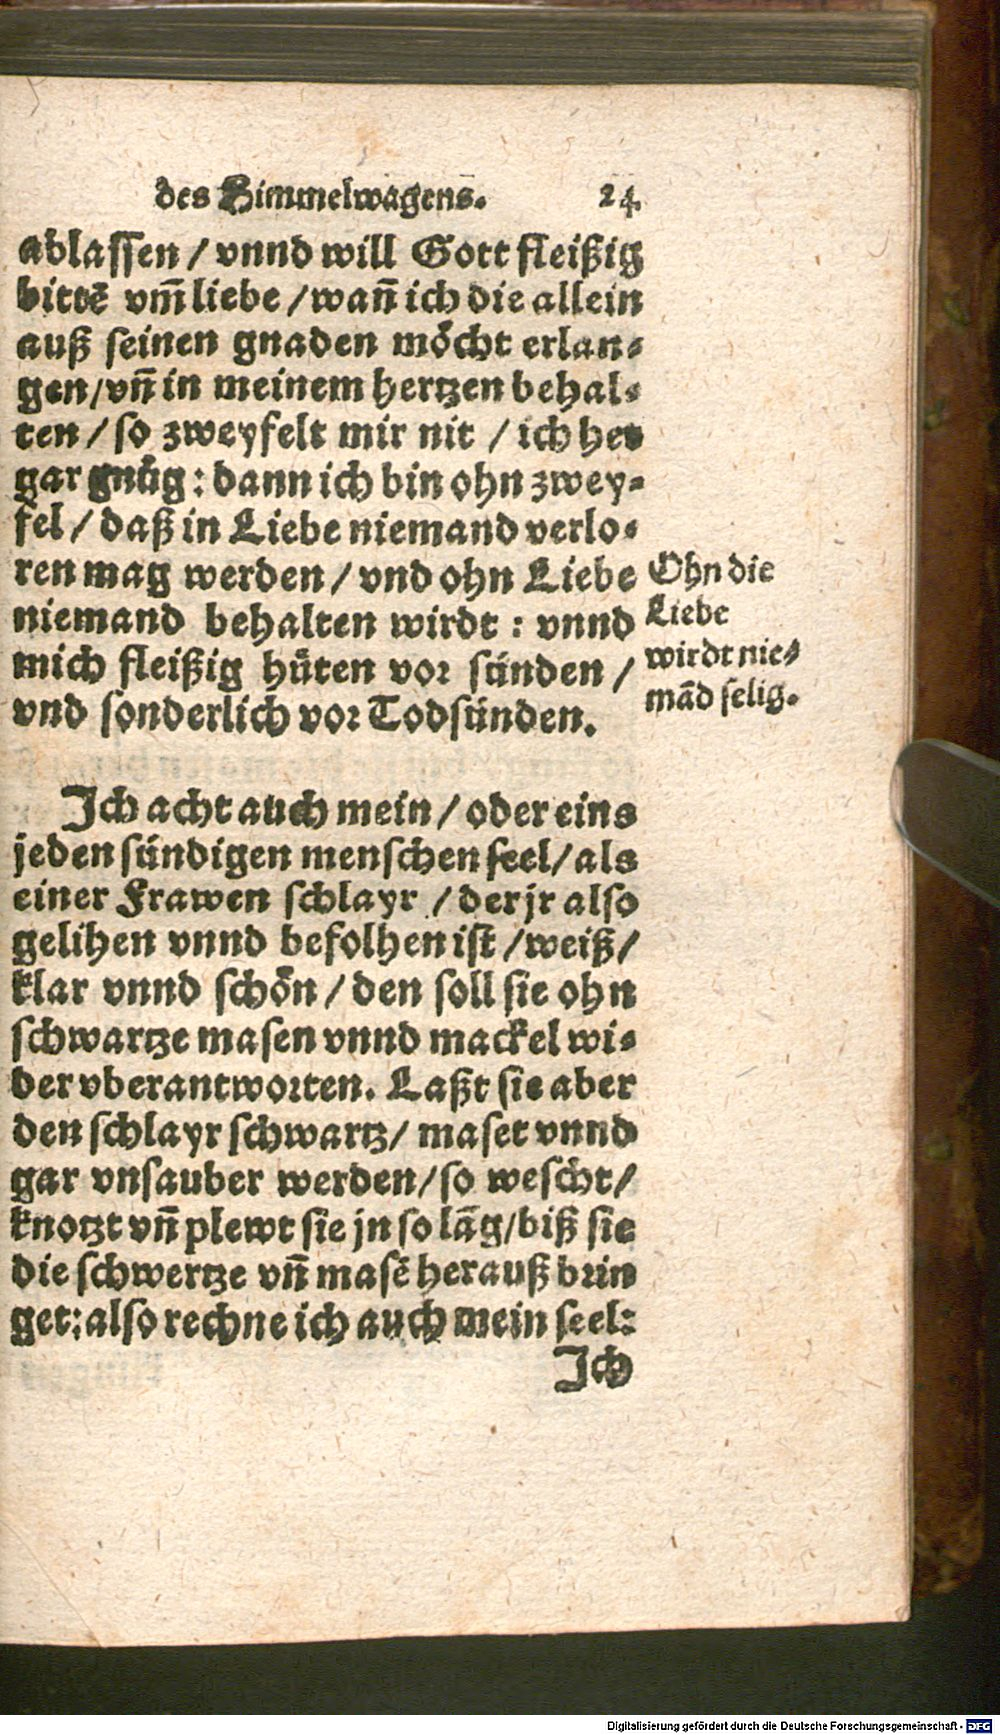 des Himmelwagens. 24.
ablassen / vnnd will Gott fleißig
bittē vm̄ liebe / wañ ich die allein
auß seinen gnaden möcht erlan-
gen / vñ in meinem hertzen behal-
ten / so zweyfelt mir nit / ich het
gar gnůg: dann ich bin ohn zwey-
fel / daß in Liebe niemand verlo-
ren mag werden / vnd ohn Liebe
niemand behalten wirdt: vnnd
mich fleißig hüten vor sünden /
vnd sonderlich vor Todsünden.
Ohn die
Liebe
wirdt nie-
mād selig.
Ich acht auch mein / oder eins
jeden sündigen menschen seel / als
einer Frawen schlayr / der jr also
gelihen vnnd befolhen ist / weiß /
klar vnnd schön / den soll sie ohn
schwartze masen vnnd mackel wi-
der vberantworten. Laßt sie aber
den schlayr schwartz / maset vnnd
gar vnsauber werden / so wescht /
knotzt vñ plewt sie jn so lāg / biß sie
die schwertze vñ masē herauß brin
get: also rechne ich auch mein seel:
Ich
Digitalisierung gefördert durch die Deutsche Forschungsgemeinschaft - DFG